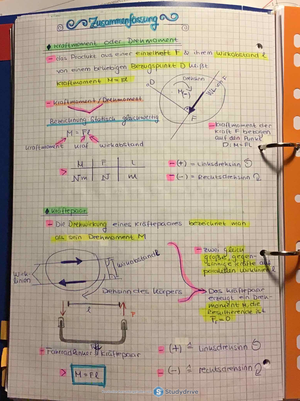 Zusammenfassung
Kraftmoment oder Drehmoment
- das Produkt aus einer Einzelkraft F & ihrem Wirkabstand l
von einem beliebigen Bezugspunkt D heißt
Kraftmoment M = Fl
Drehsinn
M(-)
D
F
- Kraftmoment / Drehmoment
Bezeichnung statisch gleichwertig
M = Fl
Kraftmoment Kraft Wirkabstand
M F l
Nm N m
- Kraftmoment der
Kraft F bezogen
auf den Punkt
D: M = Fl
- (+) = Linksdrehsinn
- (-) = Rechtsdrehsinn
Kräftepaar
- Die Drehwirkung eines Kräftepaares bezeichnet man
als sein Drehmoment M
Wirklinien
Wirkabstand
Drehsinn des Körpers
l
F
- zwei gleich
große, gegen-
sinnige Kräfte auf
parallelen Wirklinien
- Das Kräftepaar
erzeugt ein Dreh-
moment M, die
Resultierende ist
Fr = 0
- Fahrradlenker Kräftepaar
M = Fl
- (+) ≙ Linksdrehsinn
- (-) ≙ Rechtsdrehsinn
Studydrive